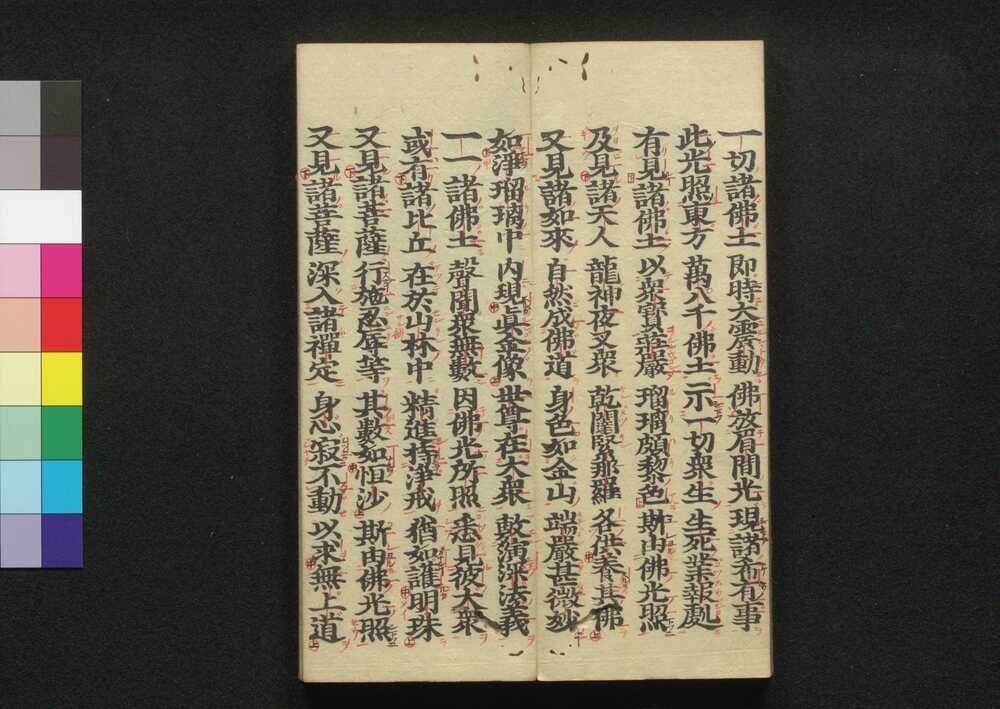 一切諸佛土 即時大震動 佛放眉間光 現諸希有事
此光照東方 萬八千佛土 示一切衆生 生死業報處
有見諸佛土 以衆寶莊嚴 瑠璃頗黎色 斯由佛光照
及見諸天人 龍神夜叉衆 乾闥緊那羅 各供養其佛
又見諸如來 自然成佛道 身色如金山 端嚴甚微妙
如淨瑠璃中 内現眞金像 世尊在大衆 敷演深法義
一一諸佛土 聲聞衆無數 因佛光所照 悉見彼大衆
或有諸比丘 在於山林中 精進持淨戒 猶如護明珠
又見諸菩薩 行施忍辱等 其數如恒沙 斯由佛光照
又見諸菩薩 深入諸禪定 身心寂不動 以求無上道